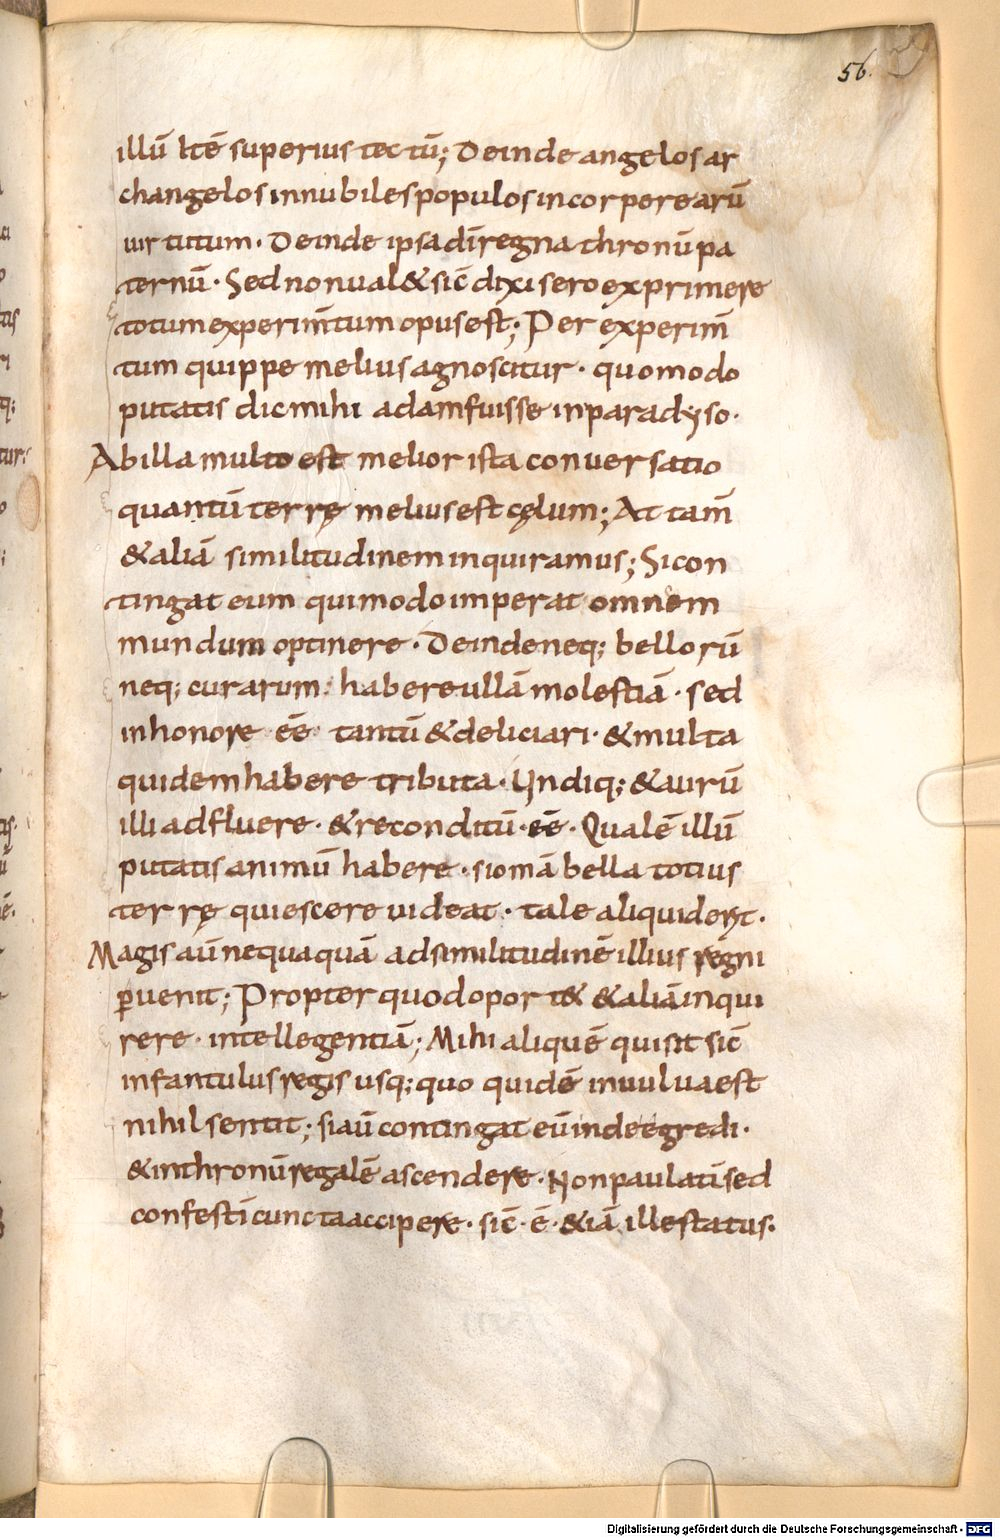 56.
illū ł tē superius tectū; Deinde angelos ar
changelos innubiles populos incorporearū
uirtutum · Deinde ipsa dī regna thronū pa
ternū · Sed non ual& sic̄ dixi sero exprimere
totum experim̄tum opus est; Per experim̄
tum quippe melius agnoscitur · quomodo
putatis dic mihi adam fuisse in paradyso ·
Ab illa multo est melior ista conuersatio
quantū terrę melius est cęlum; At tam̄
& aliā similitudinem inquiramus; Si con
tingat eum qui modo imperat omnem
mundum optinere · Deinde neq; bellorū
neq; curarum · habere ullā molestiā · sed
in honore ēē tantū & deliciari · & multa
quidem habere tributa · Undiq; & aurū
illi adfluere · & reconditū · ēē · Qualē illū
putatis animū habere · si omā bella totius
terrę quiescere uideat · tale aliquid erit ·
Magis aū nequaquā ad similitudinē illius regni
ꝑuenit; Propter quod oport& & aliā inqui
rere · intellegentiā; Mihi aliquē qui sit sic̄
infantulus regis usq; quo quidē in uulua est
nihil sentit; si aū contingat eū inde egredi ·
& in thronū regalē ascendere · Non paulatī sed
confestī cuncta accipere · sic̄ · ē · &iā ille status ·
Digitalisierung gefördert durch die Deutsche Forschungsgemeinschaft - DFG